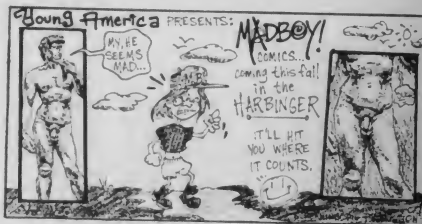 Young America PRESENTS:
MY, HE
SEEMS
MAD...
MADBOY!
COMICS...
coming this fall
in the
HARBINGER
IT'LL HIT
YOU WHERE
IT COUNTS.